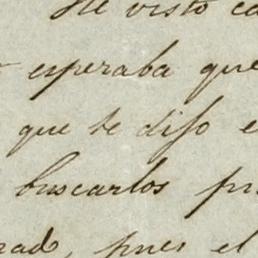 He visto ca
esperaba que
que te dijo e
buscarlos pr
rad, pues el